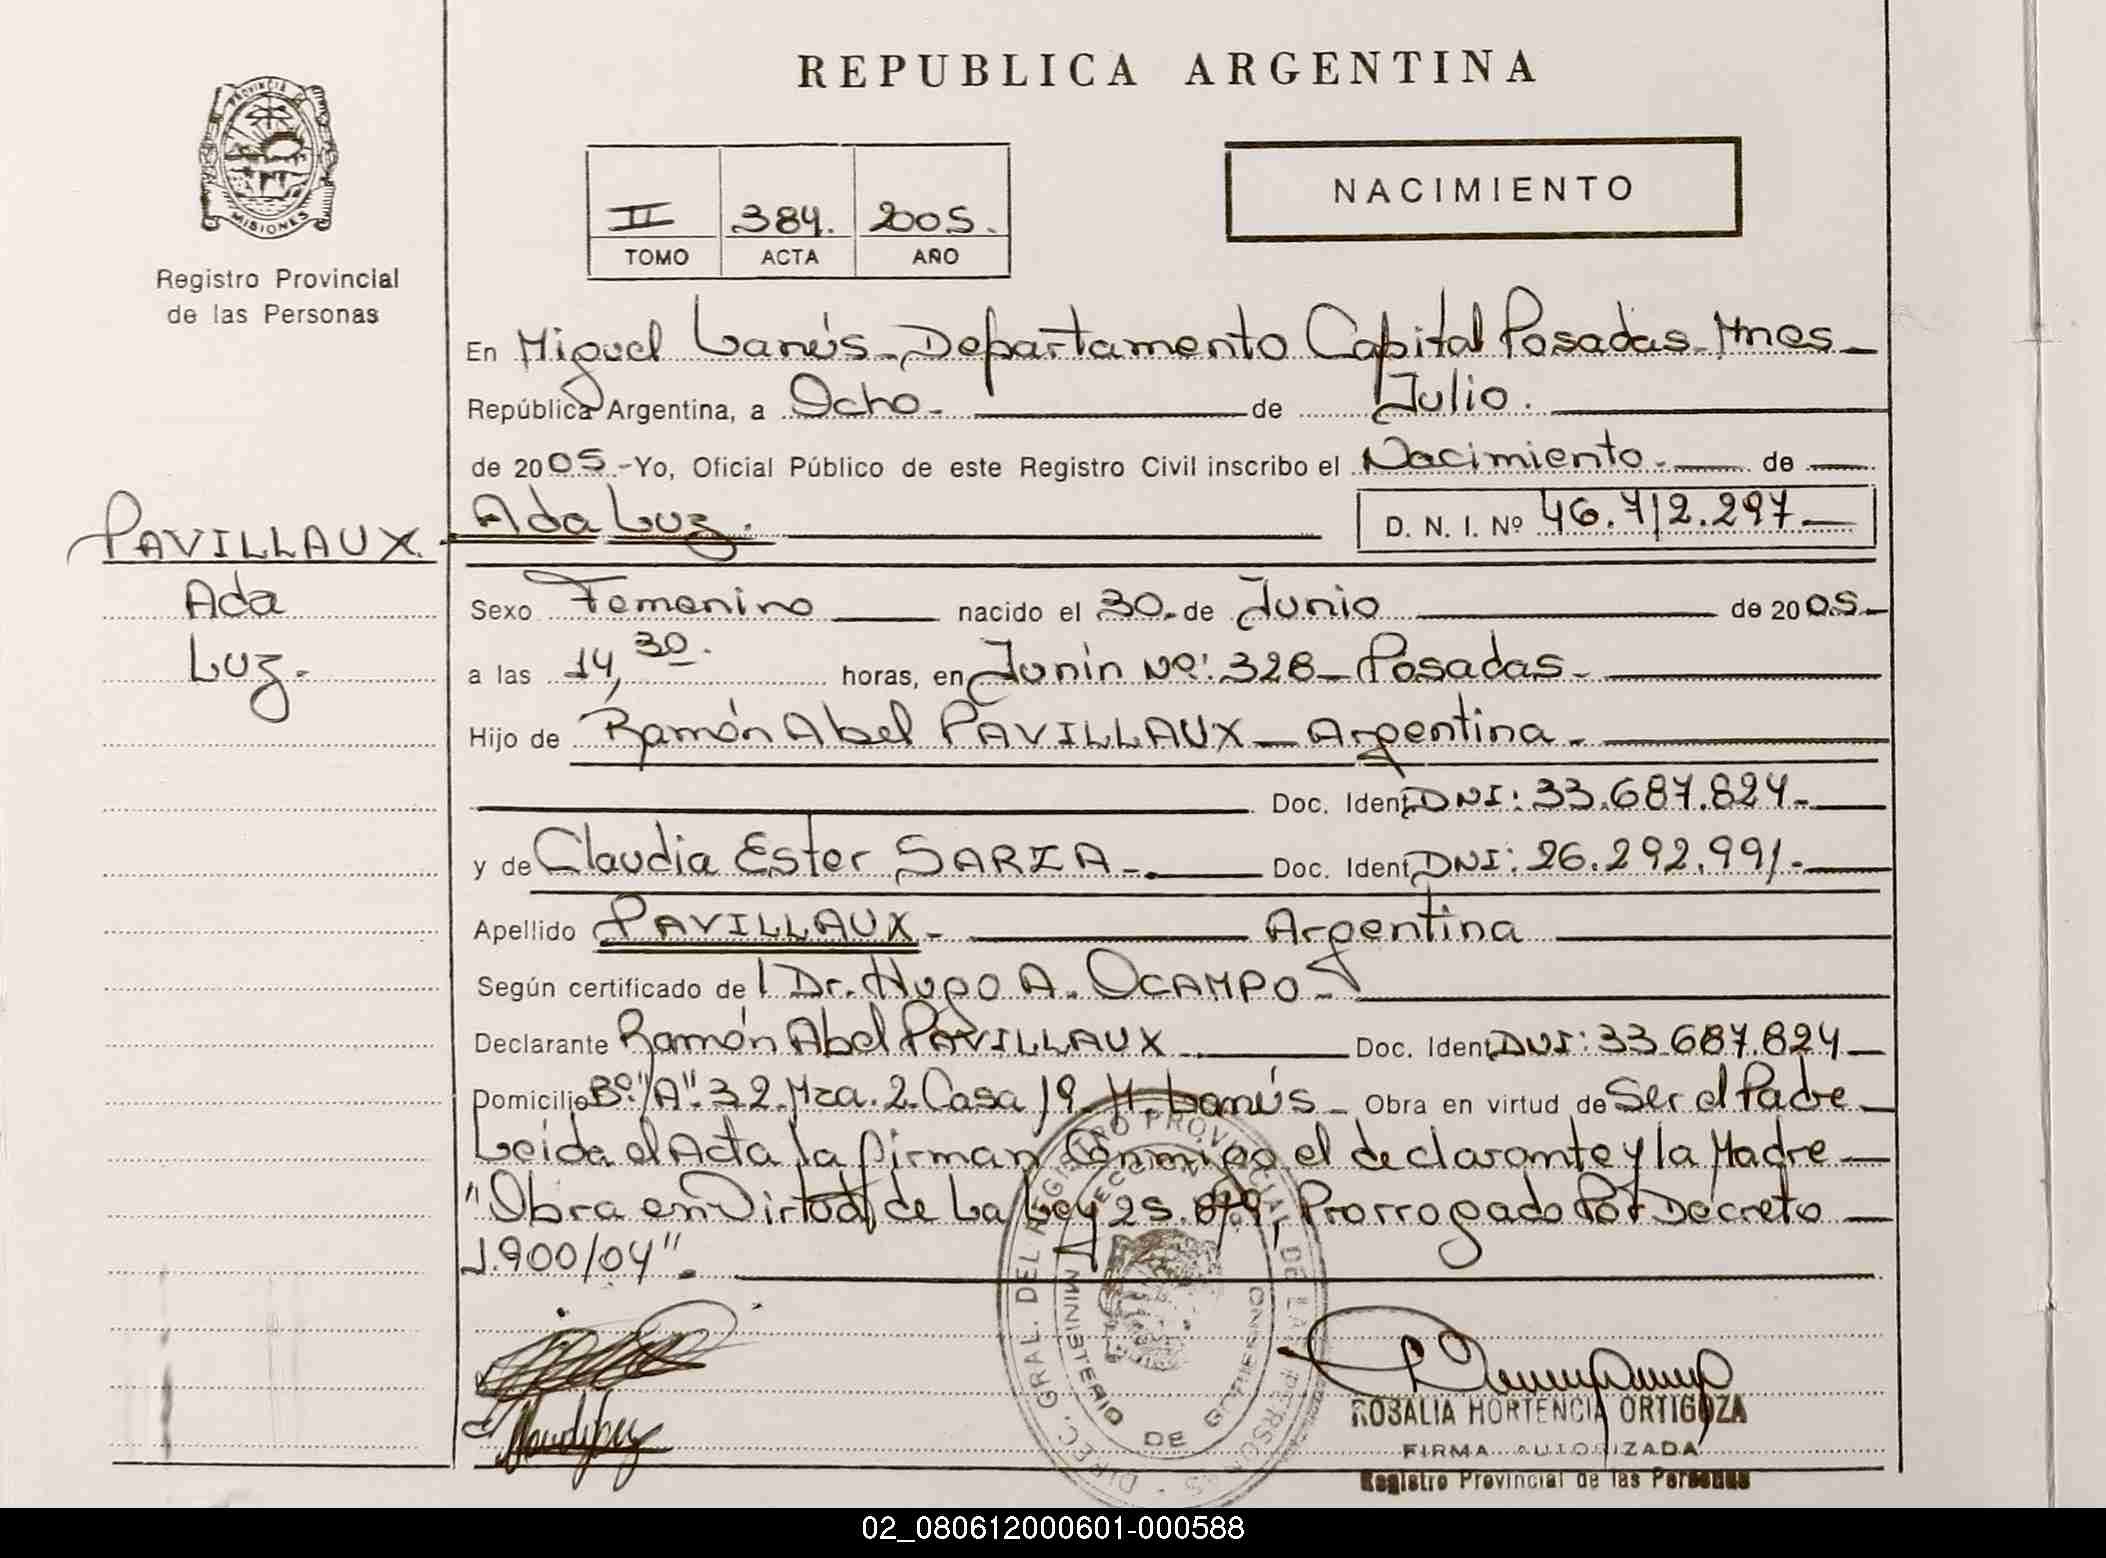 REPUBLICA ARGENTINA
PROVINCIA DE
MISIONES
Registro Provincial
de las Personas
NACIMIENTO
II 384. 2005.
TOMO ACTA AÑO
En Miguel Lanús - Departamento Capital Posadas - Mnes -
República Argentina, a Ocho. de Julio.
de 2005.- Yo, Oficial Público de este Registro Civil inscribo el Nacimiento. de
PAVILLAUX. Ada Luz. D. N. I. Nº 46.712.297
Ada
Luz.
Sexo Femenino nacido el 30. de Junio de 2005.
a las 14,30. horas, en Junin Nº: 328 - Posadas -
Hijo de Ramón Abel PAVILLAUX - Argentina -
Doc. Ident DNI: 33.687.824 -
y de Claudia Ester SARZA - Doc. Ident DNI: 26.292.991 -
Apellido PAVILLAUX - Argentina
Según certificado de l Dr. Hugo A. OCAMPO -
Declarante Ramón Abel PAVILLAUX Doc. Ident DNI: 33.687.824
Domicilio Bº "A" 32. Mza. 2. Casa 19 - M. Lanús - Obra en virtud de Ser el Padre
Leida el Acta la firman Conmigo el declarante y la Madre
"Obra en Virtud de La Ley 25. Prorrogado Por Decreto
1.900/04".
DIREC. GRAL. DEL REGISTRO PROVINCIAL DE LAS PERSONAS
MINISTERIO DE GOBIERNO
ROSALIA HORTENCIA ORTIGOZA
FIRMA AUTORIZADA
Registro Provincial de las Personas
02_080612000601-000588